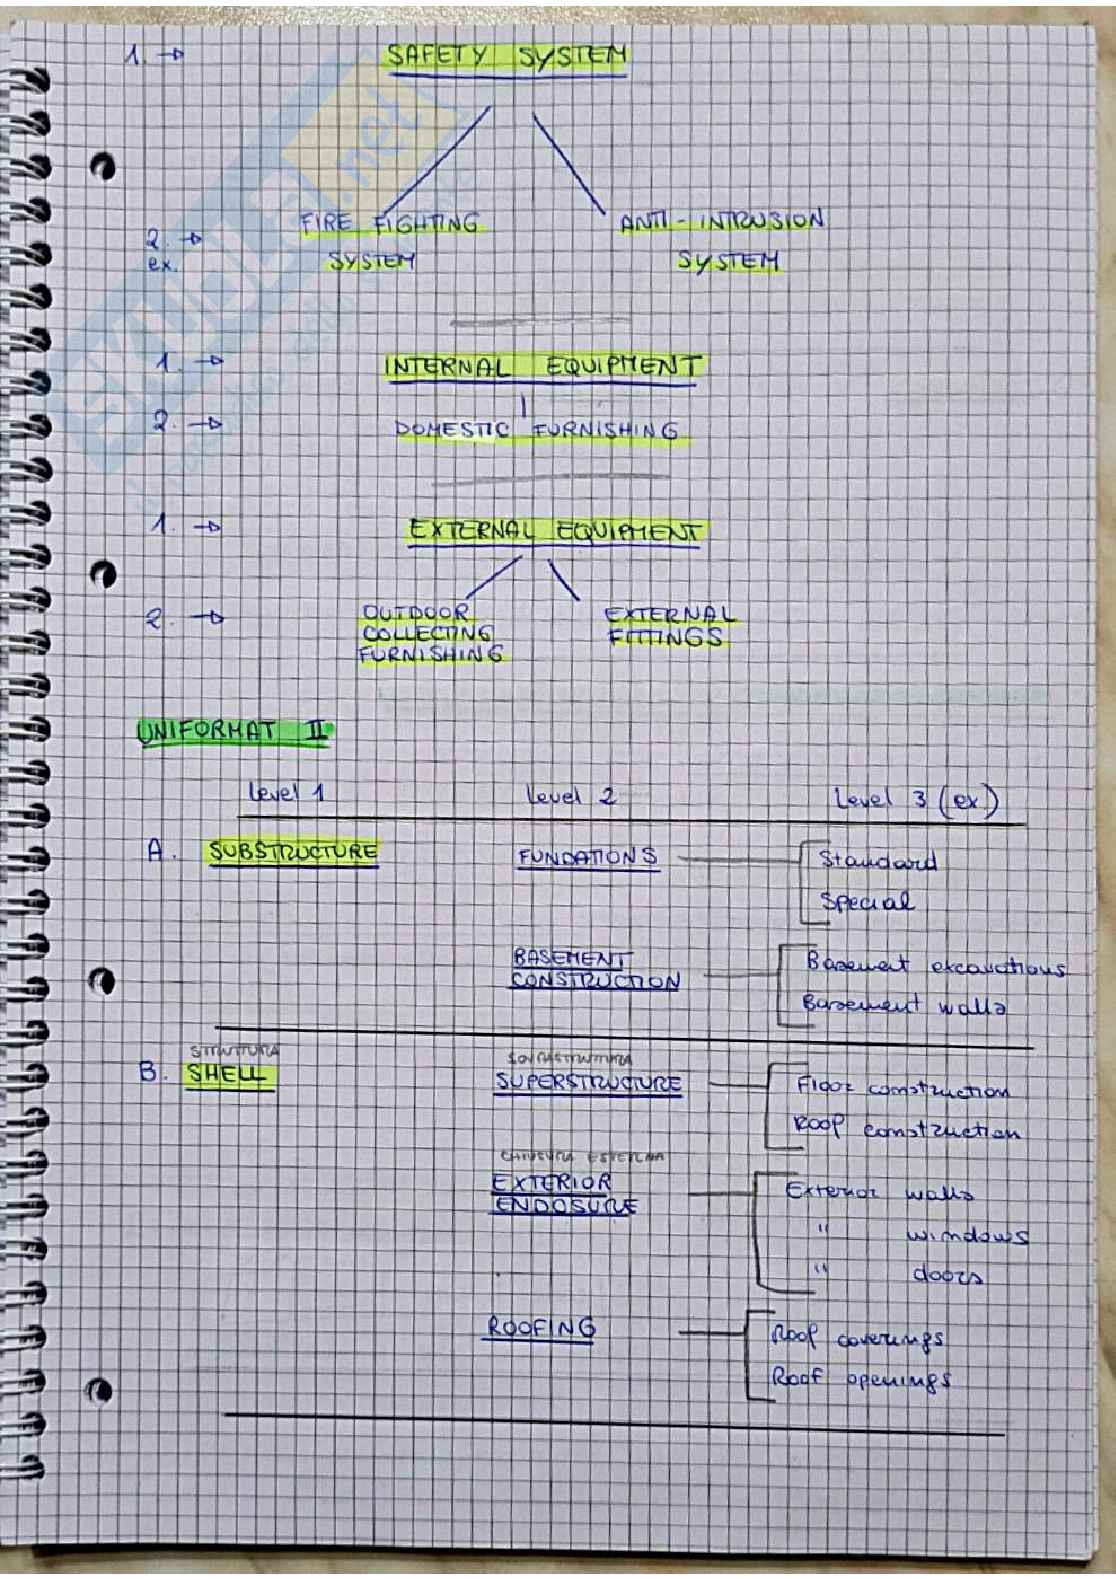 1. → SAFETY SYSTEM
2. → FIRE FIGHTING ANTI-INTRUSION
ex. SYSTEM SYSTEM
1. → INTERNAL EQUIPMENT
2. → DOMESTIC FURNISHING
1. → EXTERNAL EQUIPMENT
2. → OUTDOOR EXTERNAL
COLLECTING FITTINGS
FURNISHING
UNIFORMAT II
Level 1 Level 2 Level 3 (ex)
A. SUBSTRUCTURE FUNDATIONS Standard
Special
BASEMENT Basement excavations
CONSTRUCTION Basement walls
STRUTTURA SOVRASTRUTTURA
B. SHELL SUPERSTRUCTURE Floor construction
Roof construction
CHIUSURA ESTERNA
EXTERIOR Exterior walls
ENCLOSURE " windows
" doors
ROOFING Roof coverings
Roof openings
SKUOLA.net